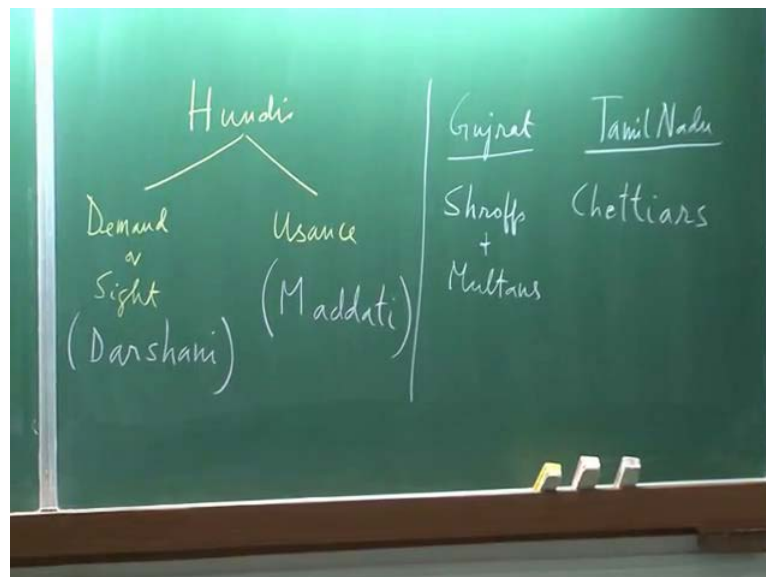 Hundi
Demand
or
Sight
(Darshani)
Usance
(Maddati)
Gujrat
Shroffs
+
Multans
Tamil Nadu
Chettiars